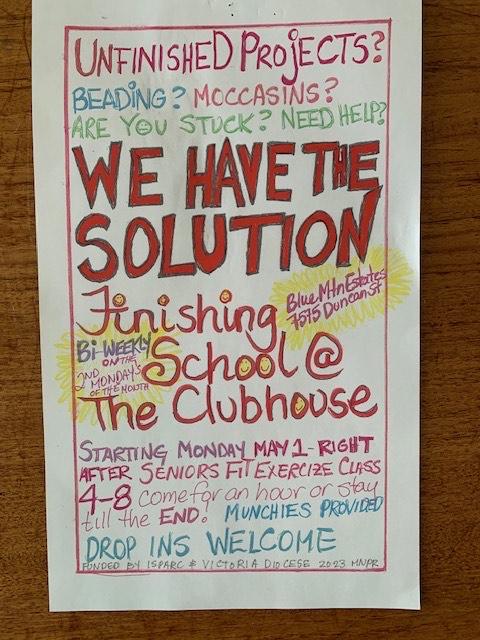 UNFINISHED PROJECTS?
BEADING? MOCCASINS?
ARE YOU STUCK? NEED HELP?
WE HAVE THE
SOLUTION
Finishing
Blue Mtn Estates
7575 Duncan St
Bi-WEEKLY
ON THE
2ND MONDAYS
OF THE MONTH
School @
The Clubhouse
STARTING MONDAY MAY 1-RIGHT
AFTER SENIORS FIT EXERCIZE CLASS
4-8 come for an hour or stay
till the END! MUNCHIES PROVIDED
DROP INS WELCOME
FUNDED BY ISPARC & VICTORIA DIOCESE 2023 MNPR